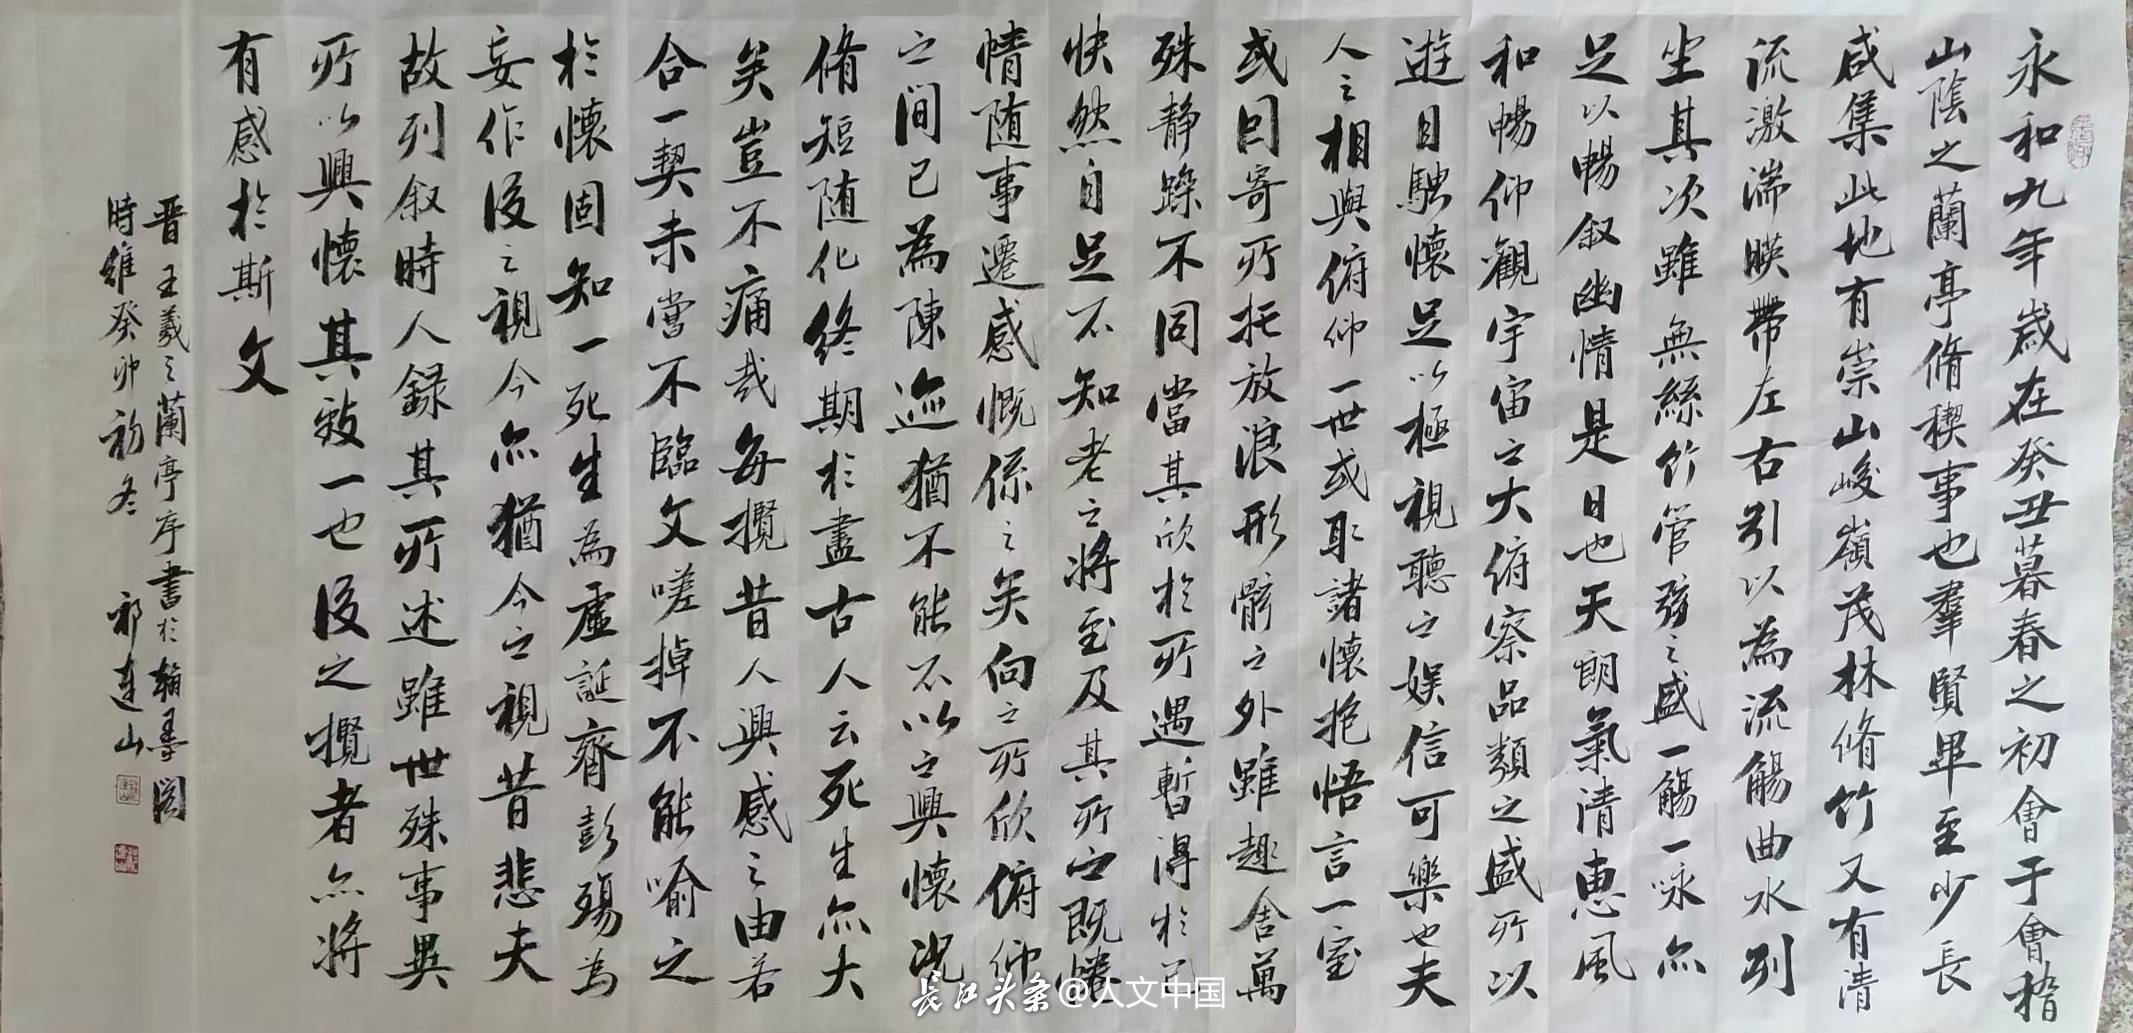 永和九年歲在癸丑暮春之初會于會稽
山陰之蘭亭脩稧事也羣賢畢至少長
咸集此地有崇山峻嶺茂林脩竹又有清
流激湍暎帶左右引以為流觴曲水列
坐其次雖無絲竹管弦之盛一觴一咏亦
足以暢叙幽情是日也天朗氣清惠風
和暢仰觀宇宙之大俯察品類之盛所以
遊目騁懷足以極視聽之娱信可樂也夫
人之相與俯仰一世或取諸懷抱悟言一室
或因寄所托放浪形骸之外雖趣舍萬
殊静躁不同當其欣於所遇暫得於己
快然自足不知老之將至及其所之既惓
情随事遷感慨係之矣向之所欣俯仰
之間已為陳迹猶不能不以之興懷況
脩短随化終期於盡古人云死生亦大
矣豈不痛哉每攬昔人興感之由若
合一契未嘗不臨文嗟掉不能喻之
於懷固知一死生為虛誕齊彭殤為
妄作後之視今亦猶今之視昔悲夫
故列叙時人録其所述雖世殊事異
所以興懷其致一也後之攬者亦將
有感於斯文
晋王羲之蘭亭序書於翰墨閣
時維癸卯初冬 祁連山
长江头条@人文中国